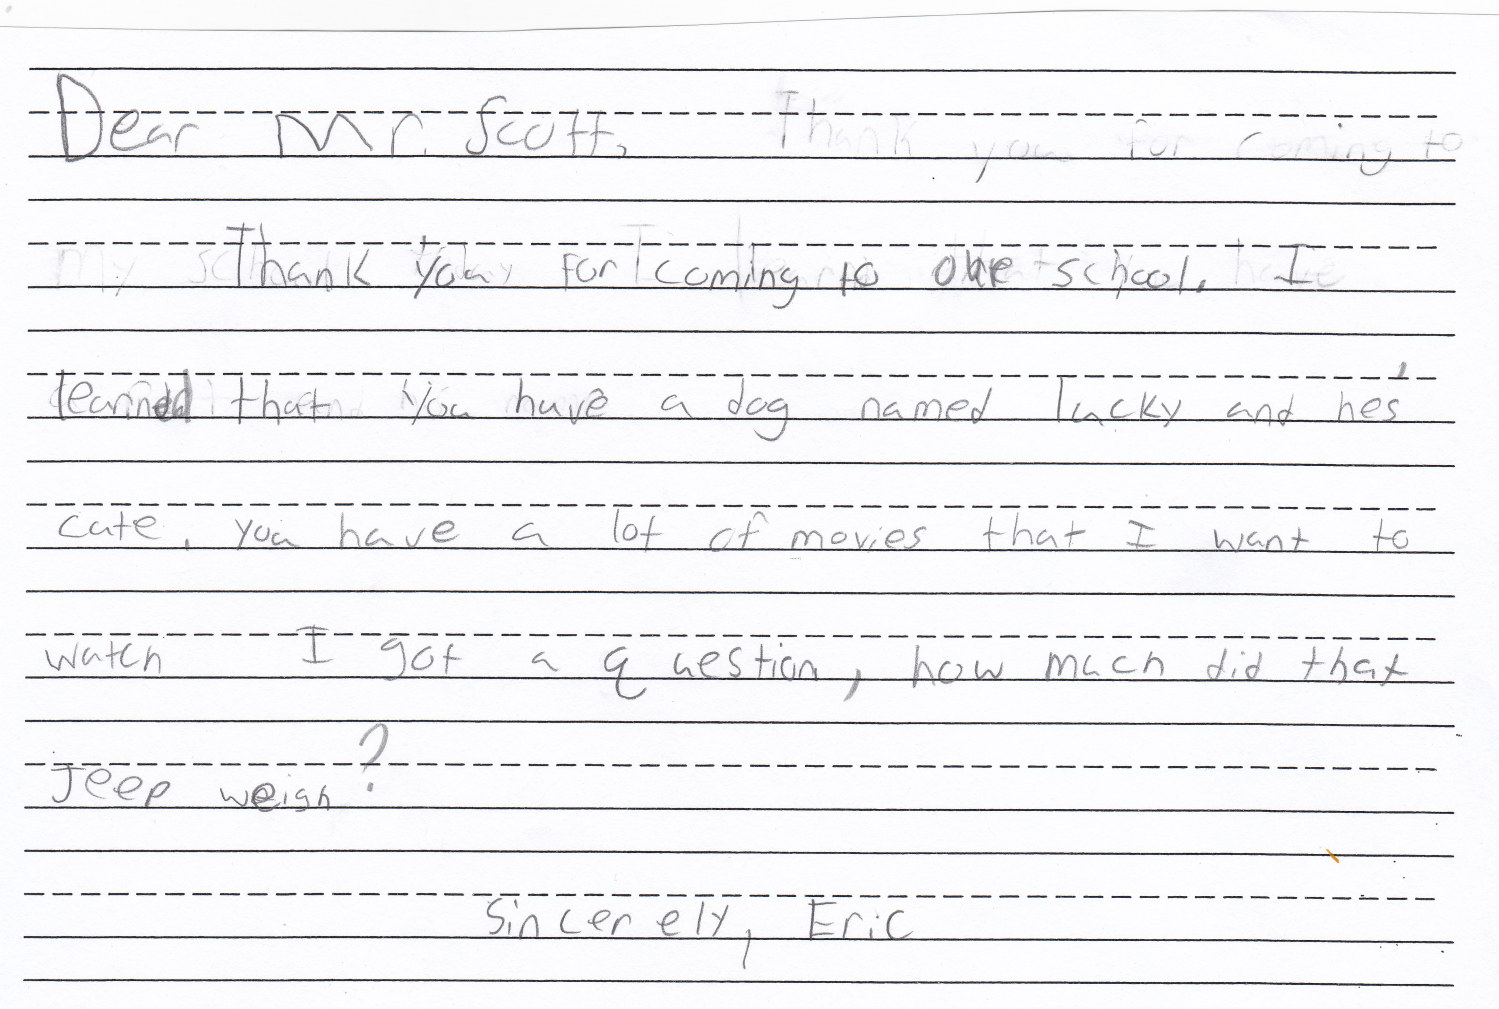 Dear Mr. Scott, Thank you for coming to
Thank you for coming to oure school. I
learned that you have a dog named lucky and hes'
cute. you have a lot of movies that I want to
watch I got a question, how much did that
Jeep weigh?
Sincerely, Eric